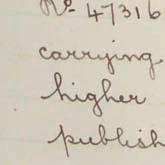 No 47316
carrying
higher
publish